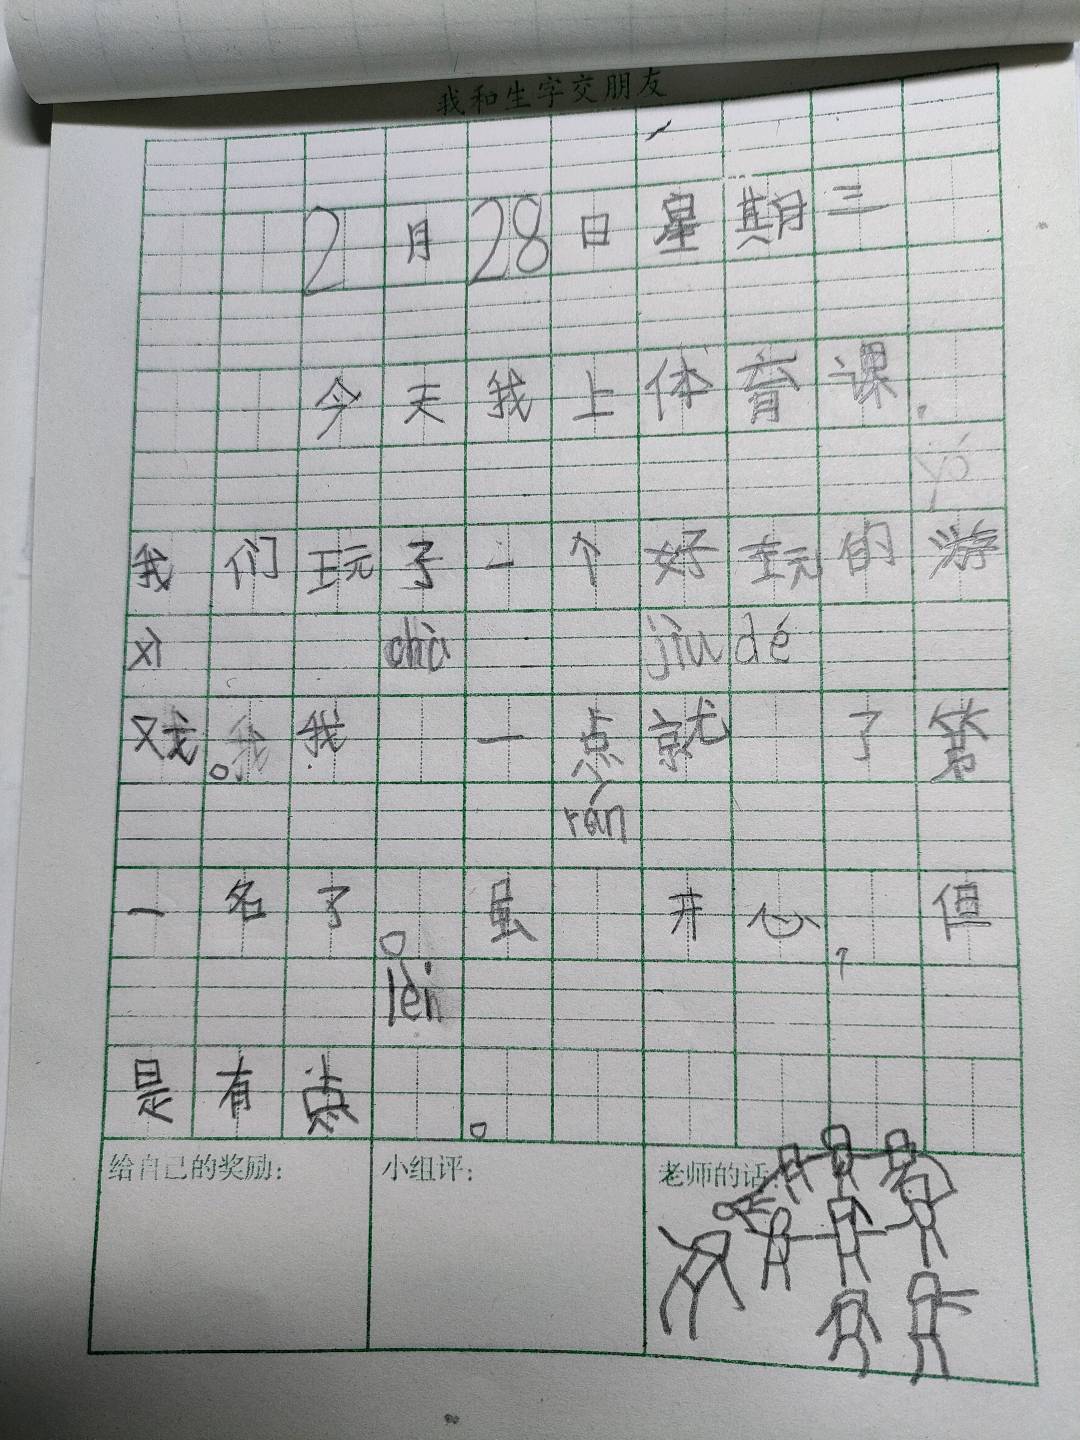 我和生字交朋友
2月28日星期三
今天我上体育课，
yó
我们玩了一个好玩的游
xì chà jiù dé
戏。我我 一点就 了第
rán
一名了。虽 开心，但
lèi
是有点 。
给自己的奖励：
小组评：
老师的话：